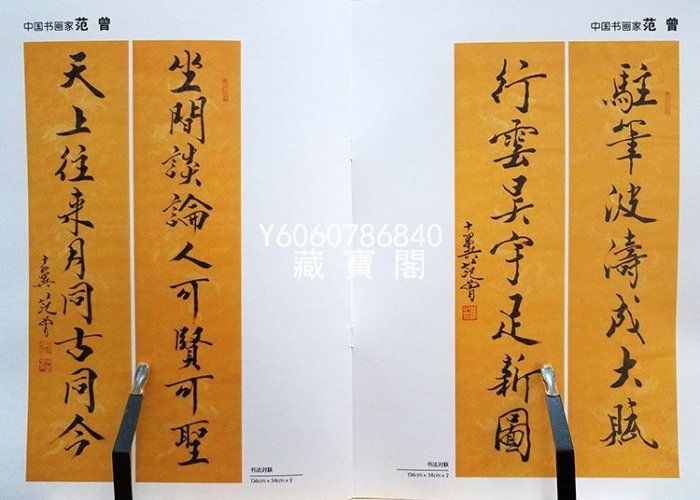 中国书画家 范 曾
坐間談論人可賢可聖
天上往来月同古同今
十翼范曾
书法对联
136cm × 34cm × 2
中国书画家 范 曾
駐筆波濤成大賦
行雲昊宇足新圖
十翼范曾
书法对联
136cm × 34cm × 2
Y6060786840
藏寶閣